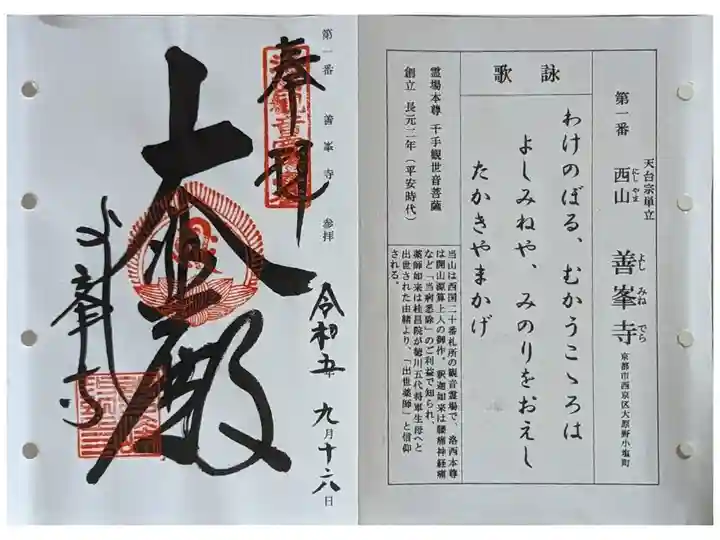 天台宗単立
第一番 西山 善峯寺
にし やま よし みね でら
京都市西京区大原野小塩町
詠歌
わけのぼる、むかうこゝろは
よしみねや、みのりをおえし
たかきやまかげ
霊場本尊 千手観世音菩薩
創立 長元二年(平安時代)
当山は西国二十番札所の観音霊場で、洛西本尊
は開山源算上人の御作。釈迦如来は腰痛神経痛
など「当病悉除」のご利益で知られ、
薬師如来は桂昌院が徳川五代将軍生母へと
出世された由緒より、「出世薬師」と信仰
される。
第一番 善峯寺 参拝
奉拝
大悲殿
よし峯寺
令和五年 九月十六日